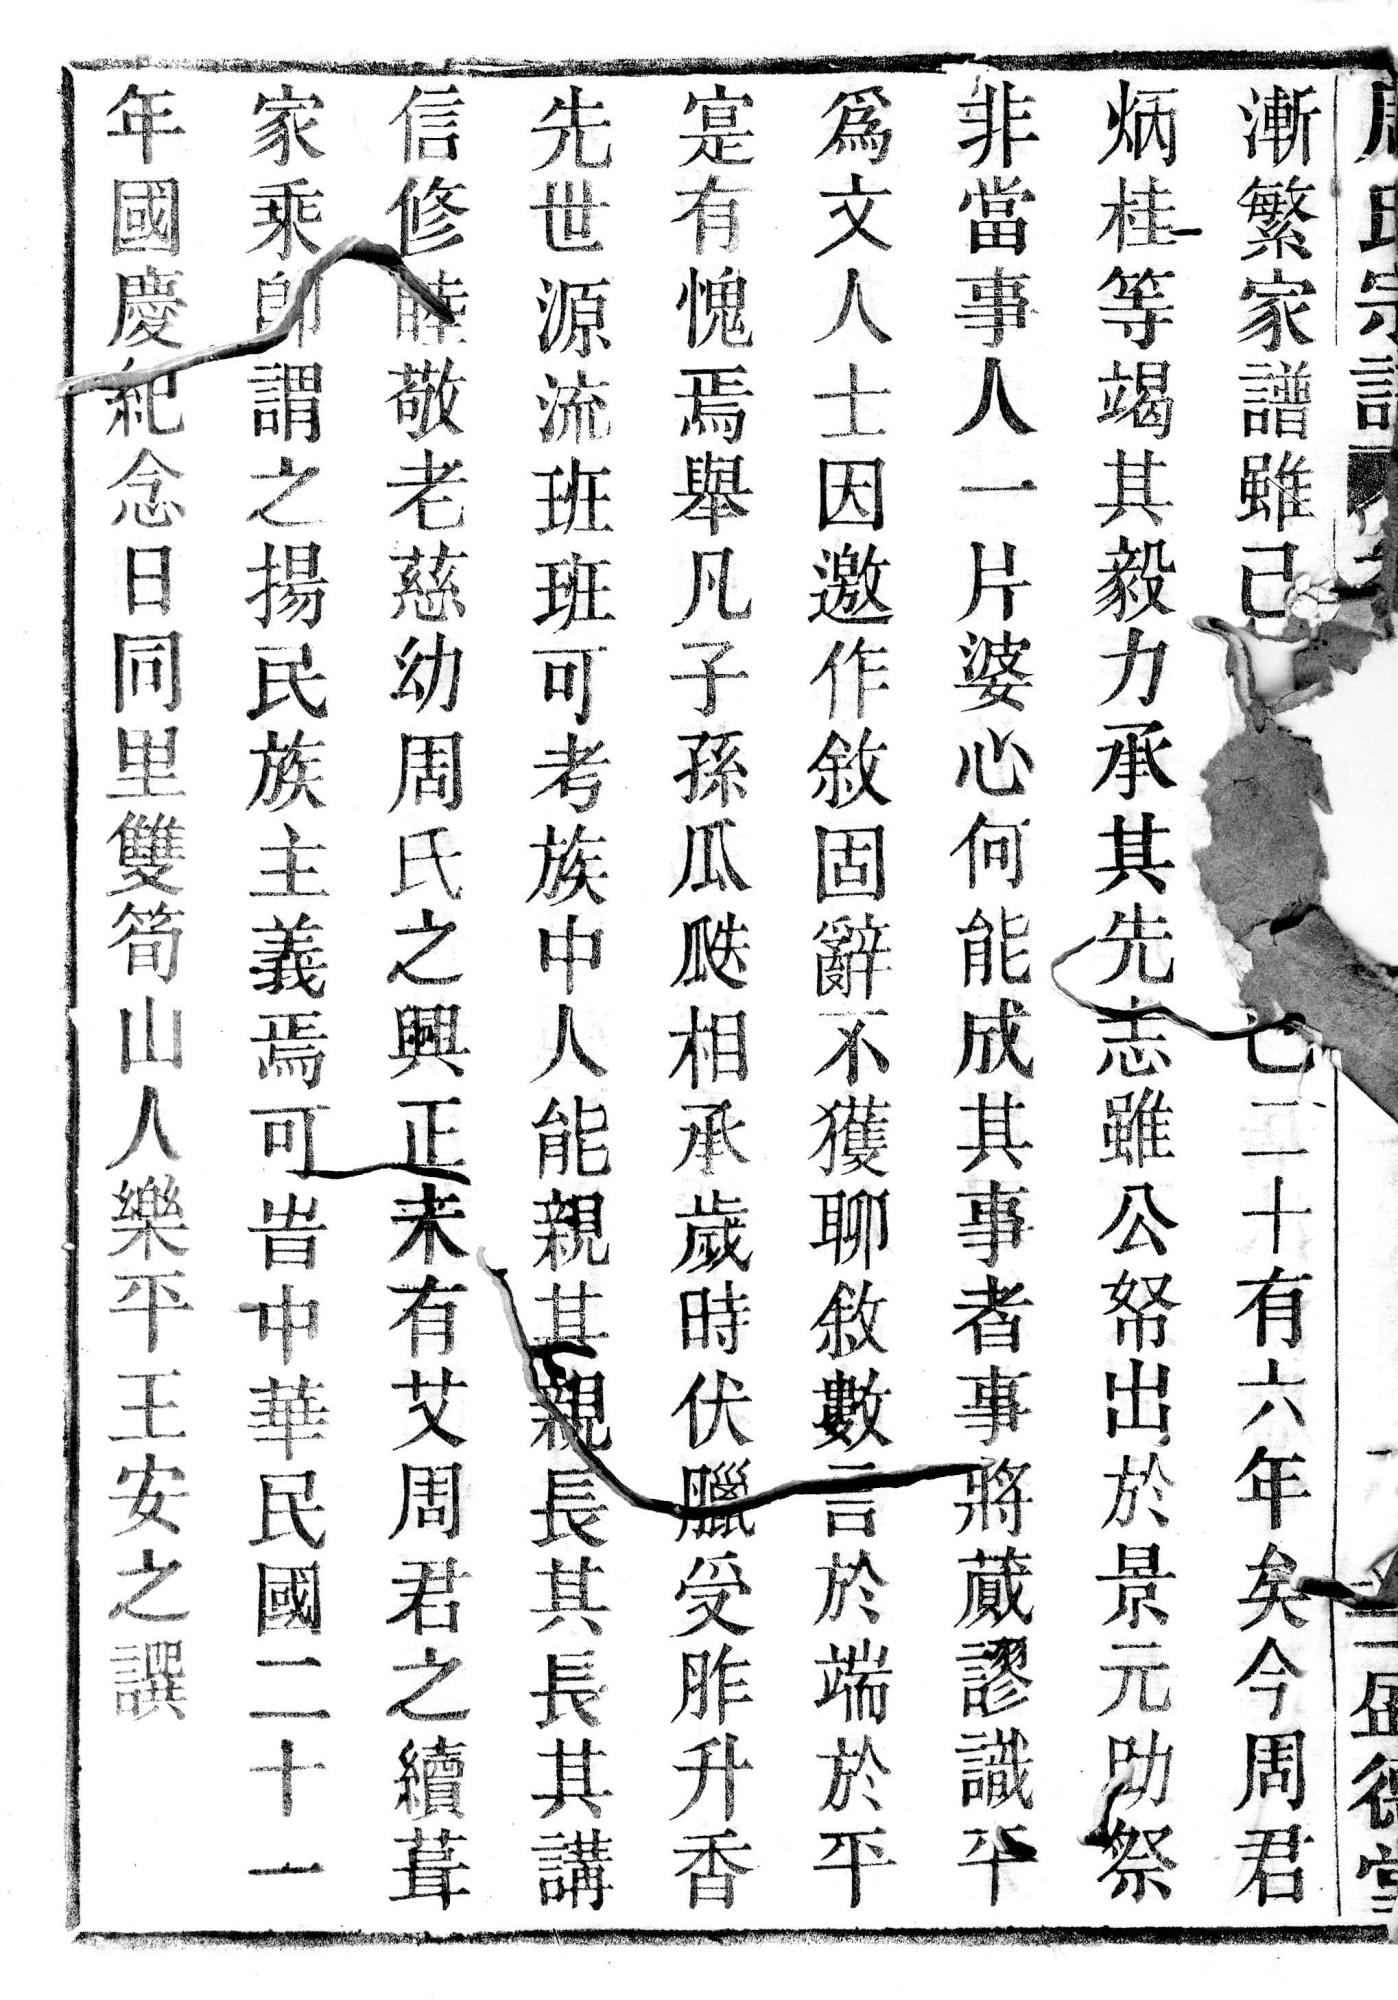 周氏宗譜 盛德堂
漸繁家譜雖己已二十有六年矣今周君
炳桂等竭其毅力承其先志雖公帑出於景元助祭
非當事人一片婆心何能成其事者事將蕆謬識平
爲文人士因邀作敘固辭不獲聊敘數言於端於平
寔有愧焉舉凡子孫瓜瓞相承歲時伏臘受胙升香
先世源流班班可考族中人能親其親長其長其講
信修睦敬老慈幼周氏之興正未有艾周君之續葺
家乘卽謂之揚民族主義焉可旹中華民國二十一
年國慶紀念日同里雙筍山人樂平王安之譔